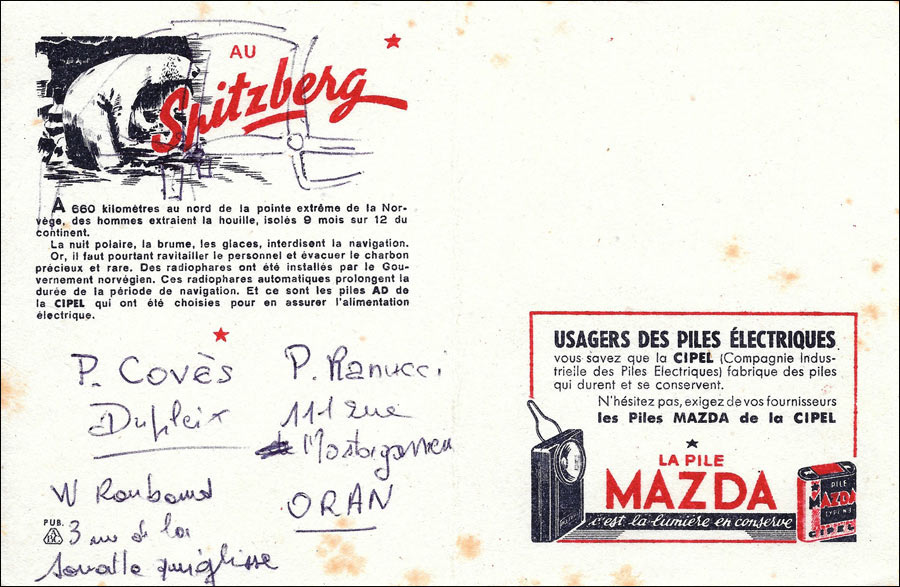 AU
Spitzberg
A 660 kilomètres au nord de la pointe extrême de la Nor-
vège, des hommes extraient la houille, isolés 9 mois sur 12 du
continent.
La nuit polaire, la brume, les glaces, interdisent la navigation.
Or, il faut pourtant ravitailler le personnel et évacuer le charbon
précieux et rare. Des radiophares ont été installés par le Gou-
vernement norvégien. Ces radiophares automatiques prolongent la
durée de la période de navigation. Et ce sont les piles AD de
la CIPEL qui ont été choisies pour en assurer l'alimentation
électrique.
P. Covès
Dupleix
W Raubaud
3 rue de la
P. Ranucci
111 rue
Mostaganem
ORAN
PUB.
USAGERS DES PILES ÉLECTRIQUES
vous savez que la CIPEL (Compagnie Indus-
trielle des Piles Electriques) fabrique des piles
qui durent et se conservent.
N'hésitez pas, exigez de vos fournisseurs
les Piles MAZDA de la CIPEL
LA PILE
MAZDA
c'est la lumière en conserve
PILE
MAZDA